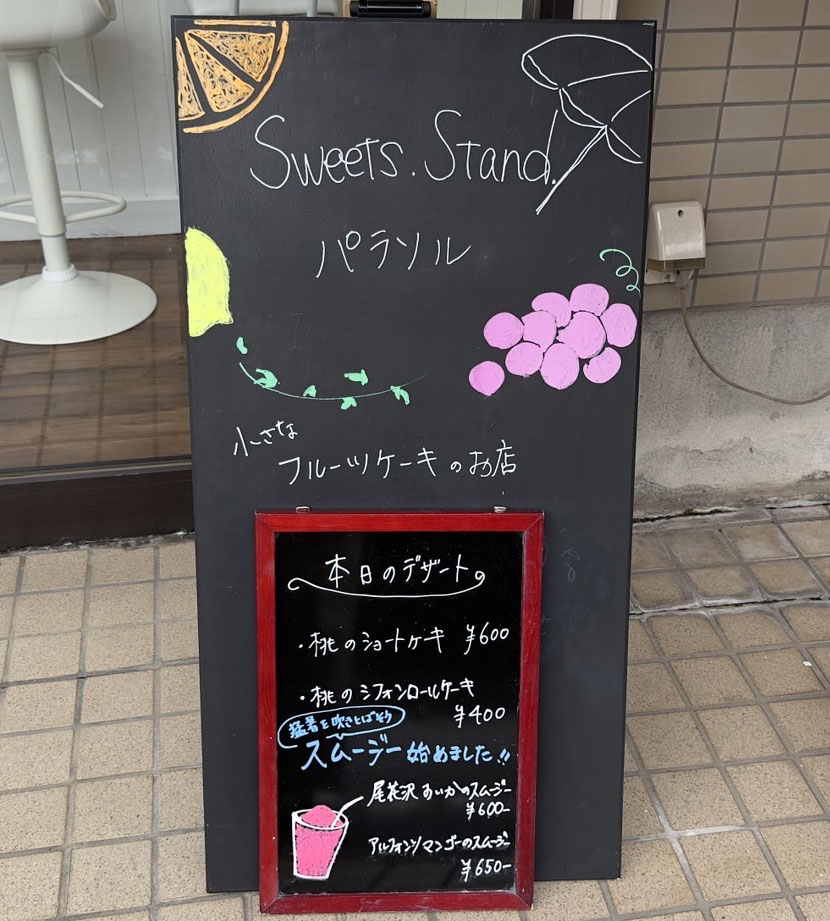 Sweets. Stand.
パラソル
小さな
フルーツケーキのお店
本日のデザート
・桃のショートケーキ ¥600
・桃のシフォンロールケーキ
¥400
猛暑を吹きとばそう
スムージー始めました!!
尾花沢すいかのスムージー
¥600-
アルフォンソマンゴーのスムージー
¥650-